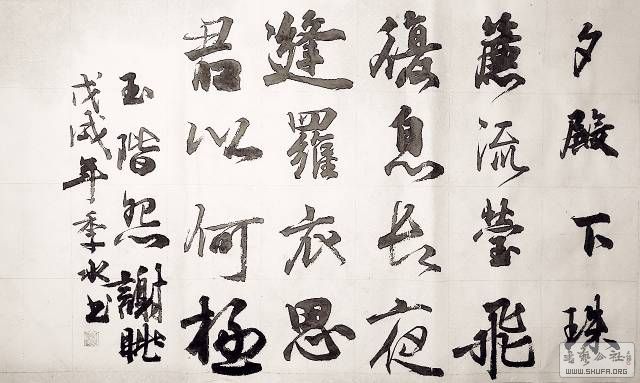 夕殿下珠
簾流螢飛
復息長夜
縫羅衣思
君以何極
玉階怨謝眺
戊戌年季水书
書藝公社
WWW.SHUFA.ORG